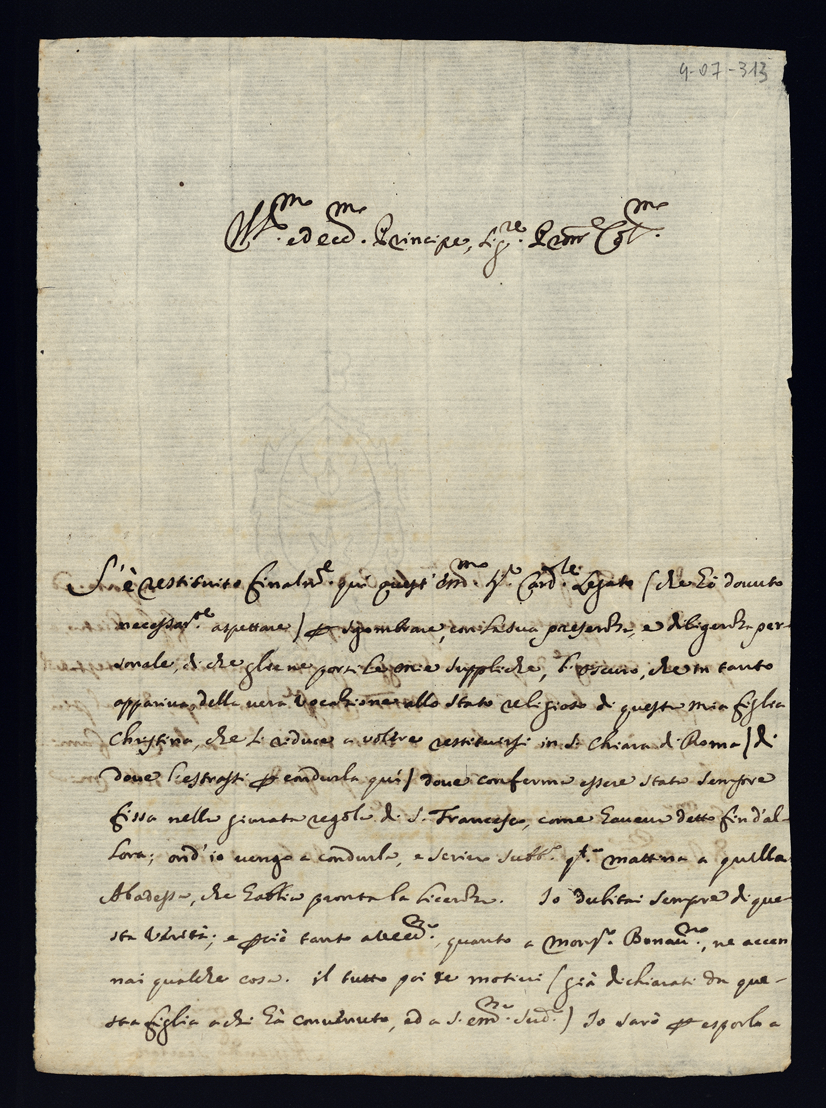 4-07-313
Ill.mo ed ecc.mo Principe, Sig.re P.rone Col.mo
S'è restituito finalm.te qui quest' Em.mo Sig.r Card.le Legato (che hò dovuto
necessar.te aspettare) p sgombrare, con la sua presenza, e diligenza per-
sonale, di che gliene porsi le mie suppliche, l'oscuro, che in tanto
appariva, della vera vocazione allo stato religioso di questa mia figlia
Christina, che si riduce a volere restituirsi in S. Chiara di Roma (di
dove l'estrassi p condurla qui) dove conferma essere stata sempre
fissa nella giurata regola di S. Francesco, come haveva detto fin d'al-
lora; ond' io vengo a condurla, e scrivo subb.o q.ta mattina a quella
Abadessa, che habbia pronta la licenza. Io dubitai sempre di que-
sta verità; e pciò tanto a V. Ecc.za, quanto a Mons.r Bonav.ra, ne accen
nai qualche cosa. il tutto poi de motivi (già dichiarati da que-
sta figlia a chi hà convenuto, ed a S. Em.za Sud.a) Io sarò p esporlo a